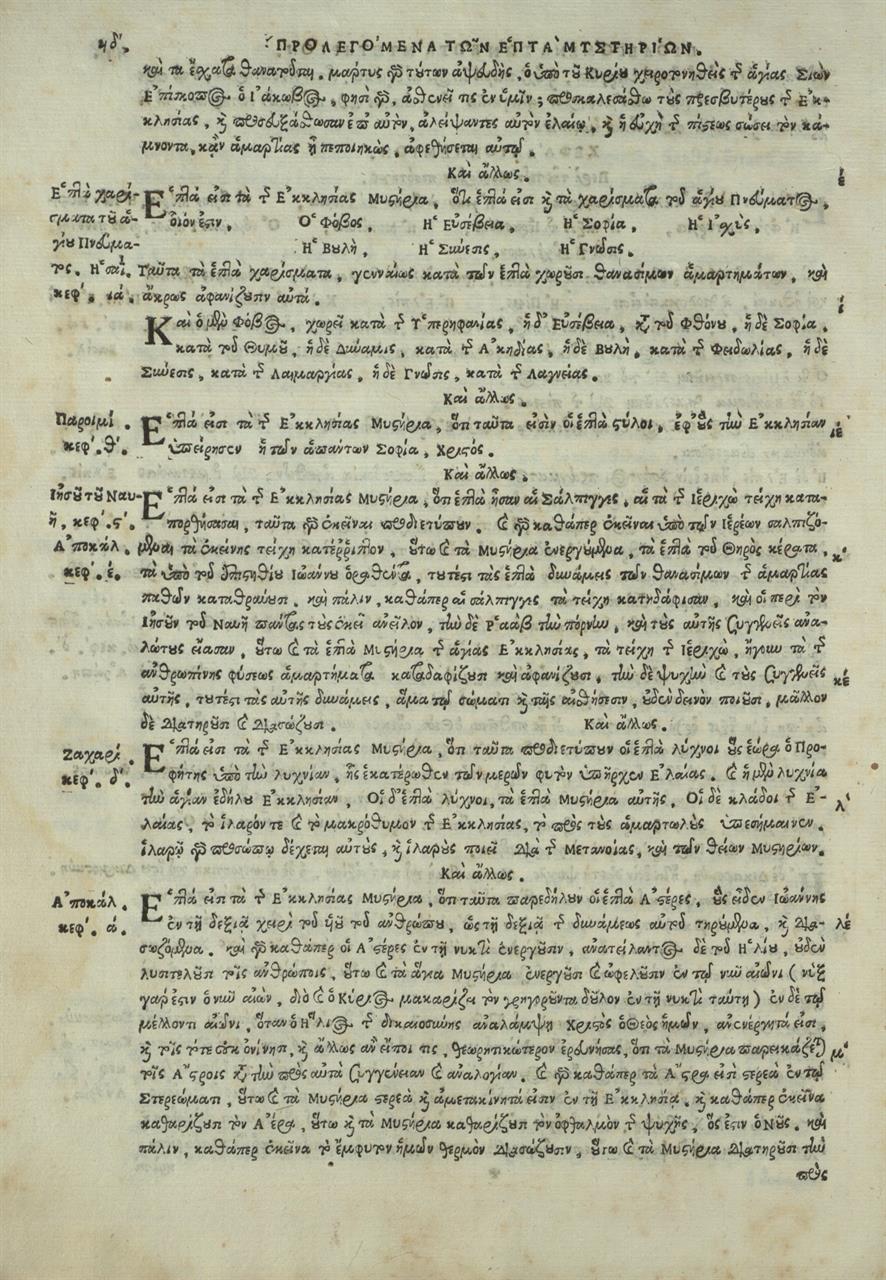 ιδ'. ΠΡΟΛΕΓΟ'ΜΕΝΑ ΤΩ͂Ν Ε'ΠΤΑ' ΜΥΣΤΗΡΙΏΝ.
καὶ τὰ ἔσχατα θανατοῦται. μάρτυς γὰρ τούτων ἀψευδὴς, ὁ ὑπὸ τοῦ Κυρίου χειροτονηθεὶς τῆς ἁγίας Σιὼν
Ἐπίσκοπος ὁ Ἰάκωβος, φησὶ γὰρ, ἀσθενεῖ τις ἐν ὑμῖν; προσκαλεσάσθω τοὺς πρεσβυτέρους τῆς Ἐκ-
κλησίας, καὶ προσευξάσθωσαν ἐπ' αὐτὸν, ἀλείψαντες αὐτὸν ἐλαίῳ, καὶ ἡ εὐχὴ τῆς πίστεως σώσει τὸν κά-
μνοντα, κἂν ἁμαρτίας ᾖ πεποιηκὼς, ἀφεθήσεται αὐτῷ.
Καὶ ἄλλως.
Ἑπτὰ χαρί-
σματα τοῦ ἁ-
γίου Πνεύμα-
τος. Ἡσαΐ.
κεφ'. ια'.
Ἑπτά εἰσι τὰ τῆς Ἐκκλησίας Μυστήρια, ὅτι ἑπτά εἰσι καὶ τὰ χαρίσματα τοῦ ἁγίου Πνεύματος,
οἷόν ἐστιν, Ὁ Φόβος, Ἡ Εὐσέβεια, Ἡ Σοφία, Ἡ Ἰσχὺς,
Ἡ Βουλὴ, Ἡ Σύνεσις, Ἡ Γνῶσις.
Ταῦτα τὰ ἑπτὰ χαρίσματα, γενναίως κατὰ τῶν ἑπτὰ χωροῦσι θανασίμων ἁμαρτημάτων, καὶ
ἄκρως ἀφανίζουσιν αὐτά.
Καὶ ὁ μὲν Φόβος, χωρεῖ κατὰ τῆς Ὑπερηφανίας, ἡ δ' Εὐσέβεια, κατὰ τοῦ Φθόνου, ἡ δὲ Σοφία,
κατὰ τοῦ Θυμοῦ, ἡ δὲ Δύναμις, κατὰ τῆς Ἀκηδίας, ἡ δὲ Βουλὴ, κατὰ τῆς Φειδωλίας, ἡ δὲ
Σύνεσις, κατὰ τῆς Λαιμαργίας, ἡ δὲ Γνῶσις, κατὰ τῆς Λαγνείας.
Καὶ ἄλλως.
Παροιμί.
κεφ'. θ'.
Ἑπτά εἰσι τὰ τῆς Ἐκκλησίας Μυστήρια, ὅτι ταῦτα εἰσὶν οἱ ἑπτὰ στύλοι, ἐφ' οὓς τὴν Ἐκκλησίαν
ὑπείρησεν ἡ τῶν ἁπάντων Σοφία, Χριστός.
Καὶ ἄλλως.
Ἰησοῦ τοῦ Ναυ-
ῆ, κεφ'. ς'.
Ἀποκάλ.
κεφ'. ε'.
Ἑπτά εἰσι τὰ τῆς Ἐκκλησίας Μυστήρια, ὅτι ἑπτὰ ἦσαν αἱ Σάλπιγγες, αἱ τὰ τῆς Ἱεριχὼ τείχη κατα-
πορθήσασαι, ταῦτα γὰρ ἐκεῖναι προδιετύπουν. καὶ γὰρ καθάπερ ἐκεῖναι ὑπὸ τῶν Ἱερέων σαλπιζό-
μεναι τὰ ἐκείνης τείχη κατέρριπτον, οὕτω καὶ τὰ Μυστήρια ἐνεργούμενα, τὰ ἑπτὰ τοῦ Θηρὸς κέρατα,
τὰ ὑπὸ τοῦ ἐπιστηθίου Ἰωάννου ὁραθέντα, τουτέστι τὰς ἑπτὰ δυνάμεις τῶν θανασίμων τῆς ἁμαρτίας
παθῶν καταθραύουσι. καὶ πάλιν, καθάπερ αἱ σάλπιγγες τὰ τείχη κατηδάφισαν, καὶ οἱ περὶ τὸν
Ἰησοῦν τοῦ Ναυῆ πάντας τοὺς ἐκεῖ ἀνεῖλον, τὴν δὲ Ῥαὰβ τὴν πόρνην, καὶ τοὺς αὐτῆς συγγενεῖς ἀνα-
λώτους εἴασαν, οὕτω καὶ τὰ ἑπτὰ Μυστήρια τῆς ἁγίας Ἐκκλησίας, τὰ τείχη τῆς Ἱεριχὼ, ἤγουν τὰ τῆς
ἀνθρωπίνης φύσεως ἁμαρτήματα καταδαφίζουσι καὶ ἀφανίζουσι, τὴν δὲ ψυχὴν καὶ τοὺς συγγενεῖς
αὐτῆς, τουτέστι τὰς αὐτῆς δυνάμεις, ἅμα τῷ σώματι καὶ ταῖς αἰσθήσεσιν, οὐδὲν δεινὸν ποιοῦσι, μᾶλλον
δὲ διατηροῦσι καὶ διασώζουσι. Καὶ ἄλλως.
Ζαχαρί.
κεφ'. δ'.
Ἑπτά εἰσι τὰ τῆς Ἐκκλησίας Μυστήρια, ὅτι ταῦτα προδιετύπουν οἱ ἑπτὰ λύχνοι οὓς ἑώρα ὁ Προ-
φήτης ὑπὸ τὴν λυχνίαν, ἧς ἑκατέρωθεν τῶν μερῶν φυτὸν ὑπῆρχεν Ἐλαίας. καὶ ἡ μὲν λυχνία
τὴν ἁγίαν ἐδήλου Ἐκκλησίαν, Οἱ δ' ἑπτὰ λύχνοι, τὰ ἑπτὰ Μυστήρια αὐτῆς, Οἱ δὲ κλάδοι τῆς Ἐ-
λαίας, τὸ ἱλαρόν τε καὶ τὸ μακρόθυμον τῆς Ἐκκλησίας, τὸ πρὸς τοὺς ἁμαρτωλοὺς ὑπεσήμαινεν.
ἱλαρῷ γὰρ προσώπῳ δέχεται αὐτοὺς, καὶ ἱλαροὺς ποιεῖ διὰ τῆς Μετανοίας, καὶ τῶν θείων Μυστηρίων.
Καὶ ἄλλως.
Ἀποκάλ.
κεφ'. α'.
Ἑπτά εἰσι τὰ τῆς Ἐκκλησίας Μυστήρια, ὅτι ταῦτα παρεδήλουν οἱ ἑπτὰ Ἀστέρες, οὓς εἶδεν Ἰωάννης
ἐν τῇ δεξιᾷ χειρὶ τοῦ υἱοῦ τοῦ ἀνθρώπου, ὡς τῇ δεξιᾷ τῆς δυνάμεως αὐτοῦ τηρούμενα, καὶ δια-
σωζόμενα. καὶ γὰρ καθάπερ οἱ Ἀστέρες ἐν τῇ νυκτὶ ἐνεργοῦσιν, ἀνατείλαντος δὲ τοῦ Ἡλίου, οὐδὲν
λυσιτελοῦσι τοῖς ἀνθρώποις, οὕτω καὶ τὰ ἅγια Μυστήρια ἐνεργοῦσι καὶ ὠφελοῦσιν ἐν τῷ νῦν αἰῶνι (νὺξ
γάρ ἐστιν ὁ νῦν αἰὼν, διὸ καὶ ὁ Κύριος μακαρίζει τὸν γρηγοροῦντα δοῦλον ἐν τῇ νυκτὶ ταύτῃ) ἐν δὲ τῷ
μέλλοντι αἰῶνι, ὅταν ὁ Ἥλιος τῆς δικαιοσύνης ἀναλάμψῃ Χριστὸς ὁ Θεὸς ἡμῶν, ἀνενέργητά εἰσι,
καὶ τοῖς τότε οὐκ ὀνίνησι, καὶ ἄλλως ἂν εἴποι τις, θεωρητικώτερον ἐρευνήσας, ὅτι τὰ Μυστήρια παρεικάζεται
τοῖς Ἄστροις κατὰ τὴν πρὸς αὐτὰ συγγένειαν καὶ ἀναλογίαν. καὶ γὰρ καθάπερ τὰ Ἄστρα εἰσὶ στερεὰ ἐν τῷ
Στερεώματι, οὕτω καὶ τὰ Μυστήρια στερεὰ καὶ ἀμετακίνητά εἰσιν ἐν τῇ Ἐκκλησίᾳ. καὶ καθάπερ ἐκεῖνα
καθαρίζουσι τὸν Ἀέρα, οὕτω καὶ τὰ Μυστήρια καθαρίζουσι τὸν ὀφθαλμὸν τῆς ψυχῆς, ὅς ἐστιν ὁ Νοῦς. καὶ
πάλιν, καθάπερ ἐκεῖνα τὸ ἔμφυτον ἡμῶν θερμὸν διασώζουσιν, οὕτω καὶ τὰ Μυστήρια διατηροῦσι τὴν
πρὸς
ε'
ι'
ιε'
κ'
κε'
λ'
λε'
μ'